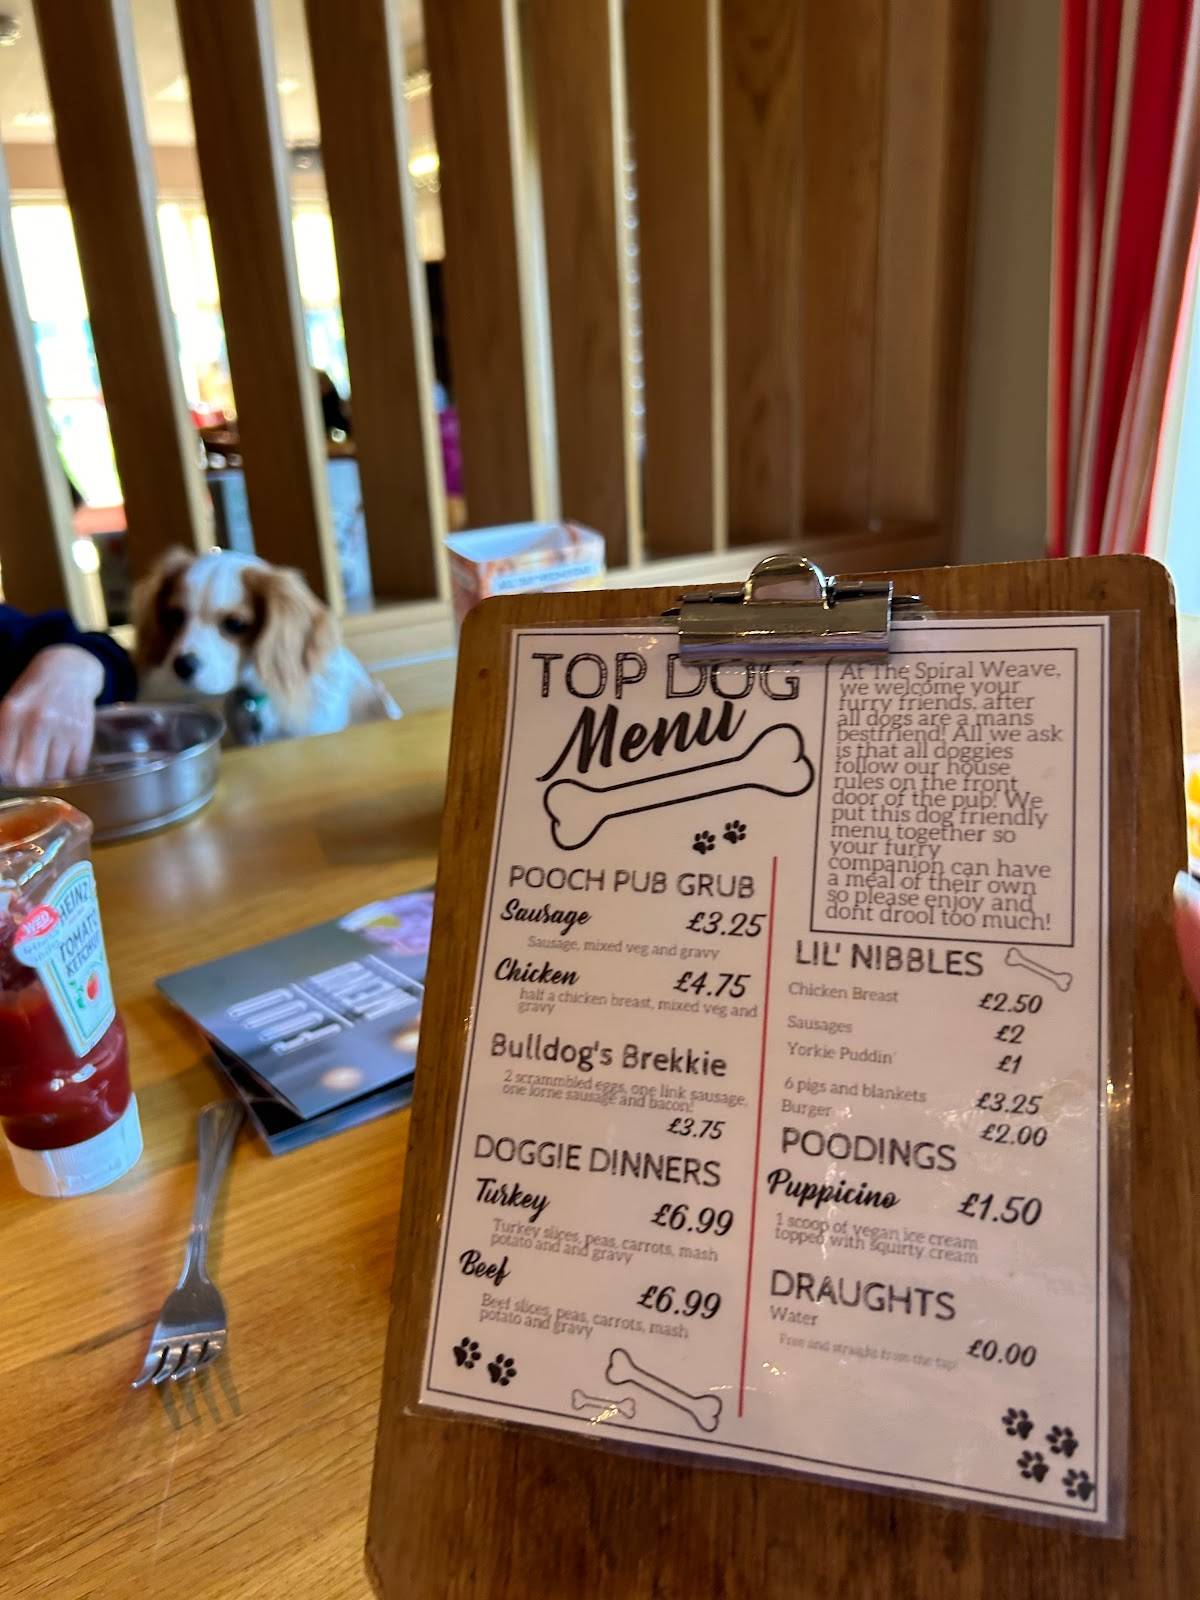 TOP DOG
Menu
At The Spiral Weave,
we welcome your
furry friends, after
all dogs are a mans
bestfriend! All we ask
is that all doggies
follow our house
rules on the front
door of the pub! We
put this dog friendly
menu together so
your furry
companion can have
a meal of their own
so please enjoy and
dont drool too much!
POOCH PUB GRUB
Sausage £3.25
Sausage, mixed veg and gravy
Chicken £4.75
half a chicken breast, mixed veg and
gravy
Bulldog's Brekkie
2 scrammbled eggs, one link sausage,
one lorne sausage and bacon!
£3.75
DOGGIE DINNERS
Turkey £6.99
Turkey slices, peas, carrots, mash
potato and and gravy
Beef £6.99
Beef slices, peas, carrots, mash
potato and gravy
LIL' NIBBLES
Chicken Breast £2.50
Sausages £2
Yorkie Puddin' £1
6 pigs and blankets £3.25
Burger £2.00
POODINGS
Puppicino £1.50
1 scoop of vegan ice cream
topped with squirty cream
DRAUGHTS
Water £0.00
Free and straight from the tap!
HEINZ
TOMATO
KETCHUP